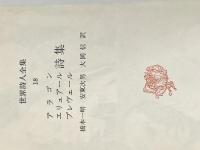 世界詩人全集
18
アラゴン
エリュアール
プレヴェール
詩集
橋本一明 安東次男 大岡信 訳